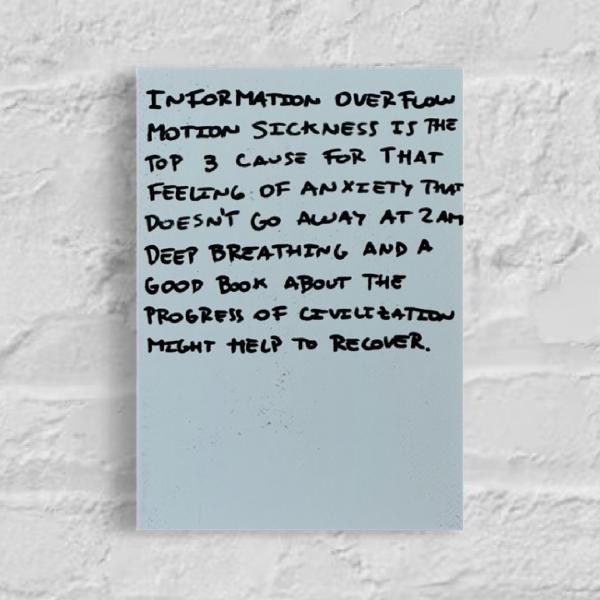 INFORMATION OVERFLOW
MOTION SICKNESS IS THE
TOP 3 CAUSE FOR THAT
FEELING OF ANXIETY THAT
DOESN'T GO AWAY AT 2AM
DEEP BREATHING AND A
GOOD BOOK ABOUT THE
PROGRESS OF CIVILIZATION
MIGHT HELP TO RECOVER.